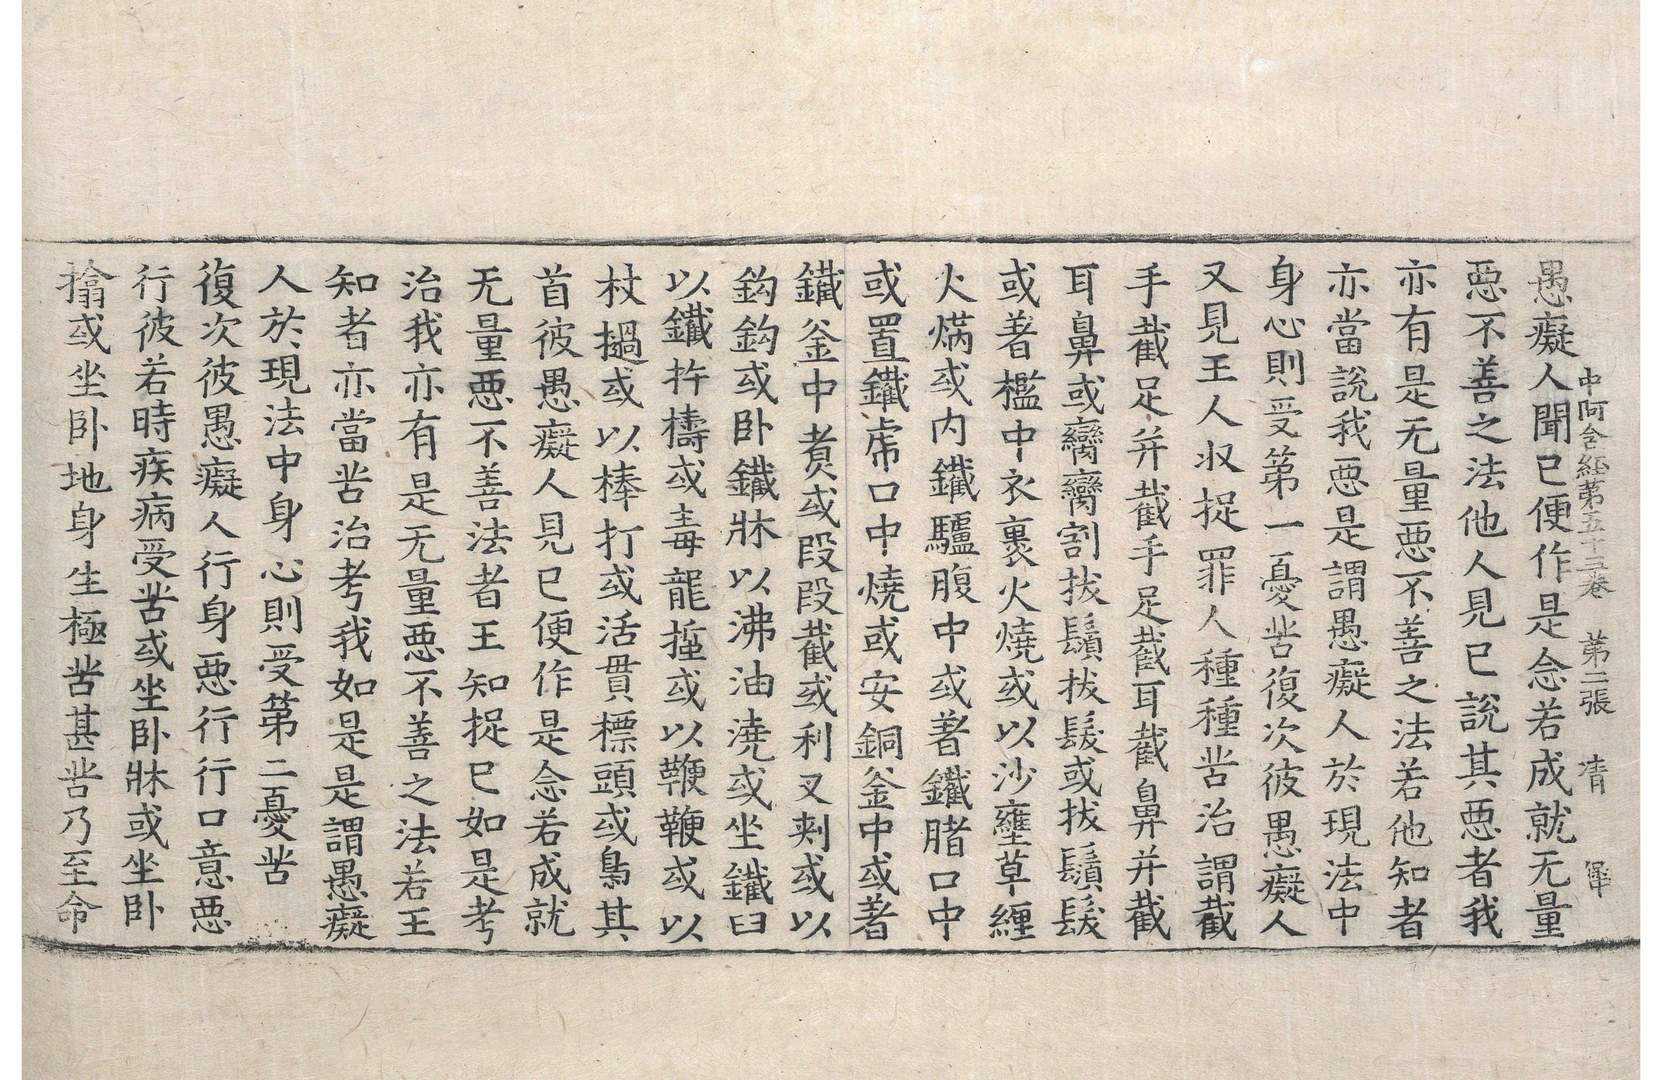 中阿含經第五十三卷 第二張 清
愚癡人聞已便作是念若成就无量
惡不善之法他人見已說其惡者我
亦有是无量惡不善之法若他知者
亦當說我惡是謂愚癡人於現法中
身心則受第一憂苦復次彼愚癡人
又見王人収捉罪人種種苦治謂截
手截足并截手足截耳截鼻并截
耳鼻或臠臠割拔鬚拔髮或拔鬚髮
或著檻中衣裹火燒或以沙壅草纏
火焫或内鐵驢腹中或著鐵猪口中
或置鐵虎口中燒或安銅釜中或著
鐵釜中煮或段段截或利叉刾或以
鈎鈎或卧鐵牀以沸油澆或坐鐵臼
以鐵杵擣或毒龍蜇或以鞭鞭或以
杖撾或以棒打或活貫摽頭或梟其
首彼愚癡人見已便作是念若成就
无量惡不善法者王知捉已如是考
治我亦有是无量惡不善之法若王
知者亦當苦治考我如是是謂愚癡
人於現法中身心則受第二憂苦
復次彼愚癡人行身惡行行口意惡
行彼若時疾病受苦或坐卧牀或坐卧
榻或坐卧地身生極苦甚苦乃至命